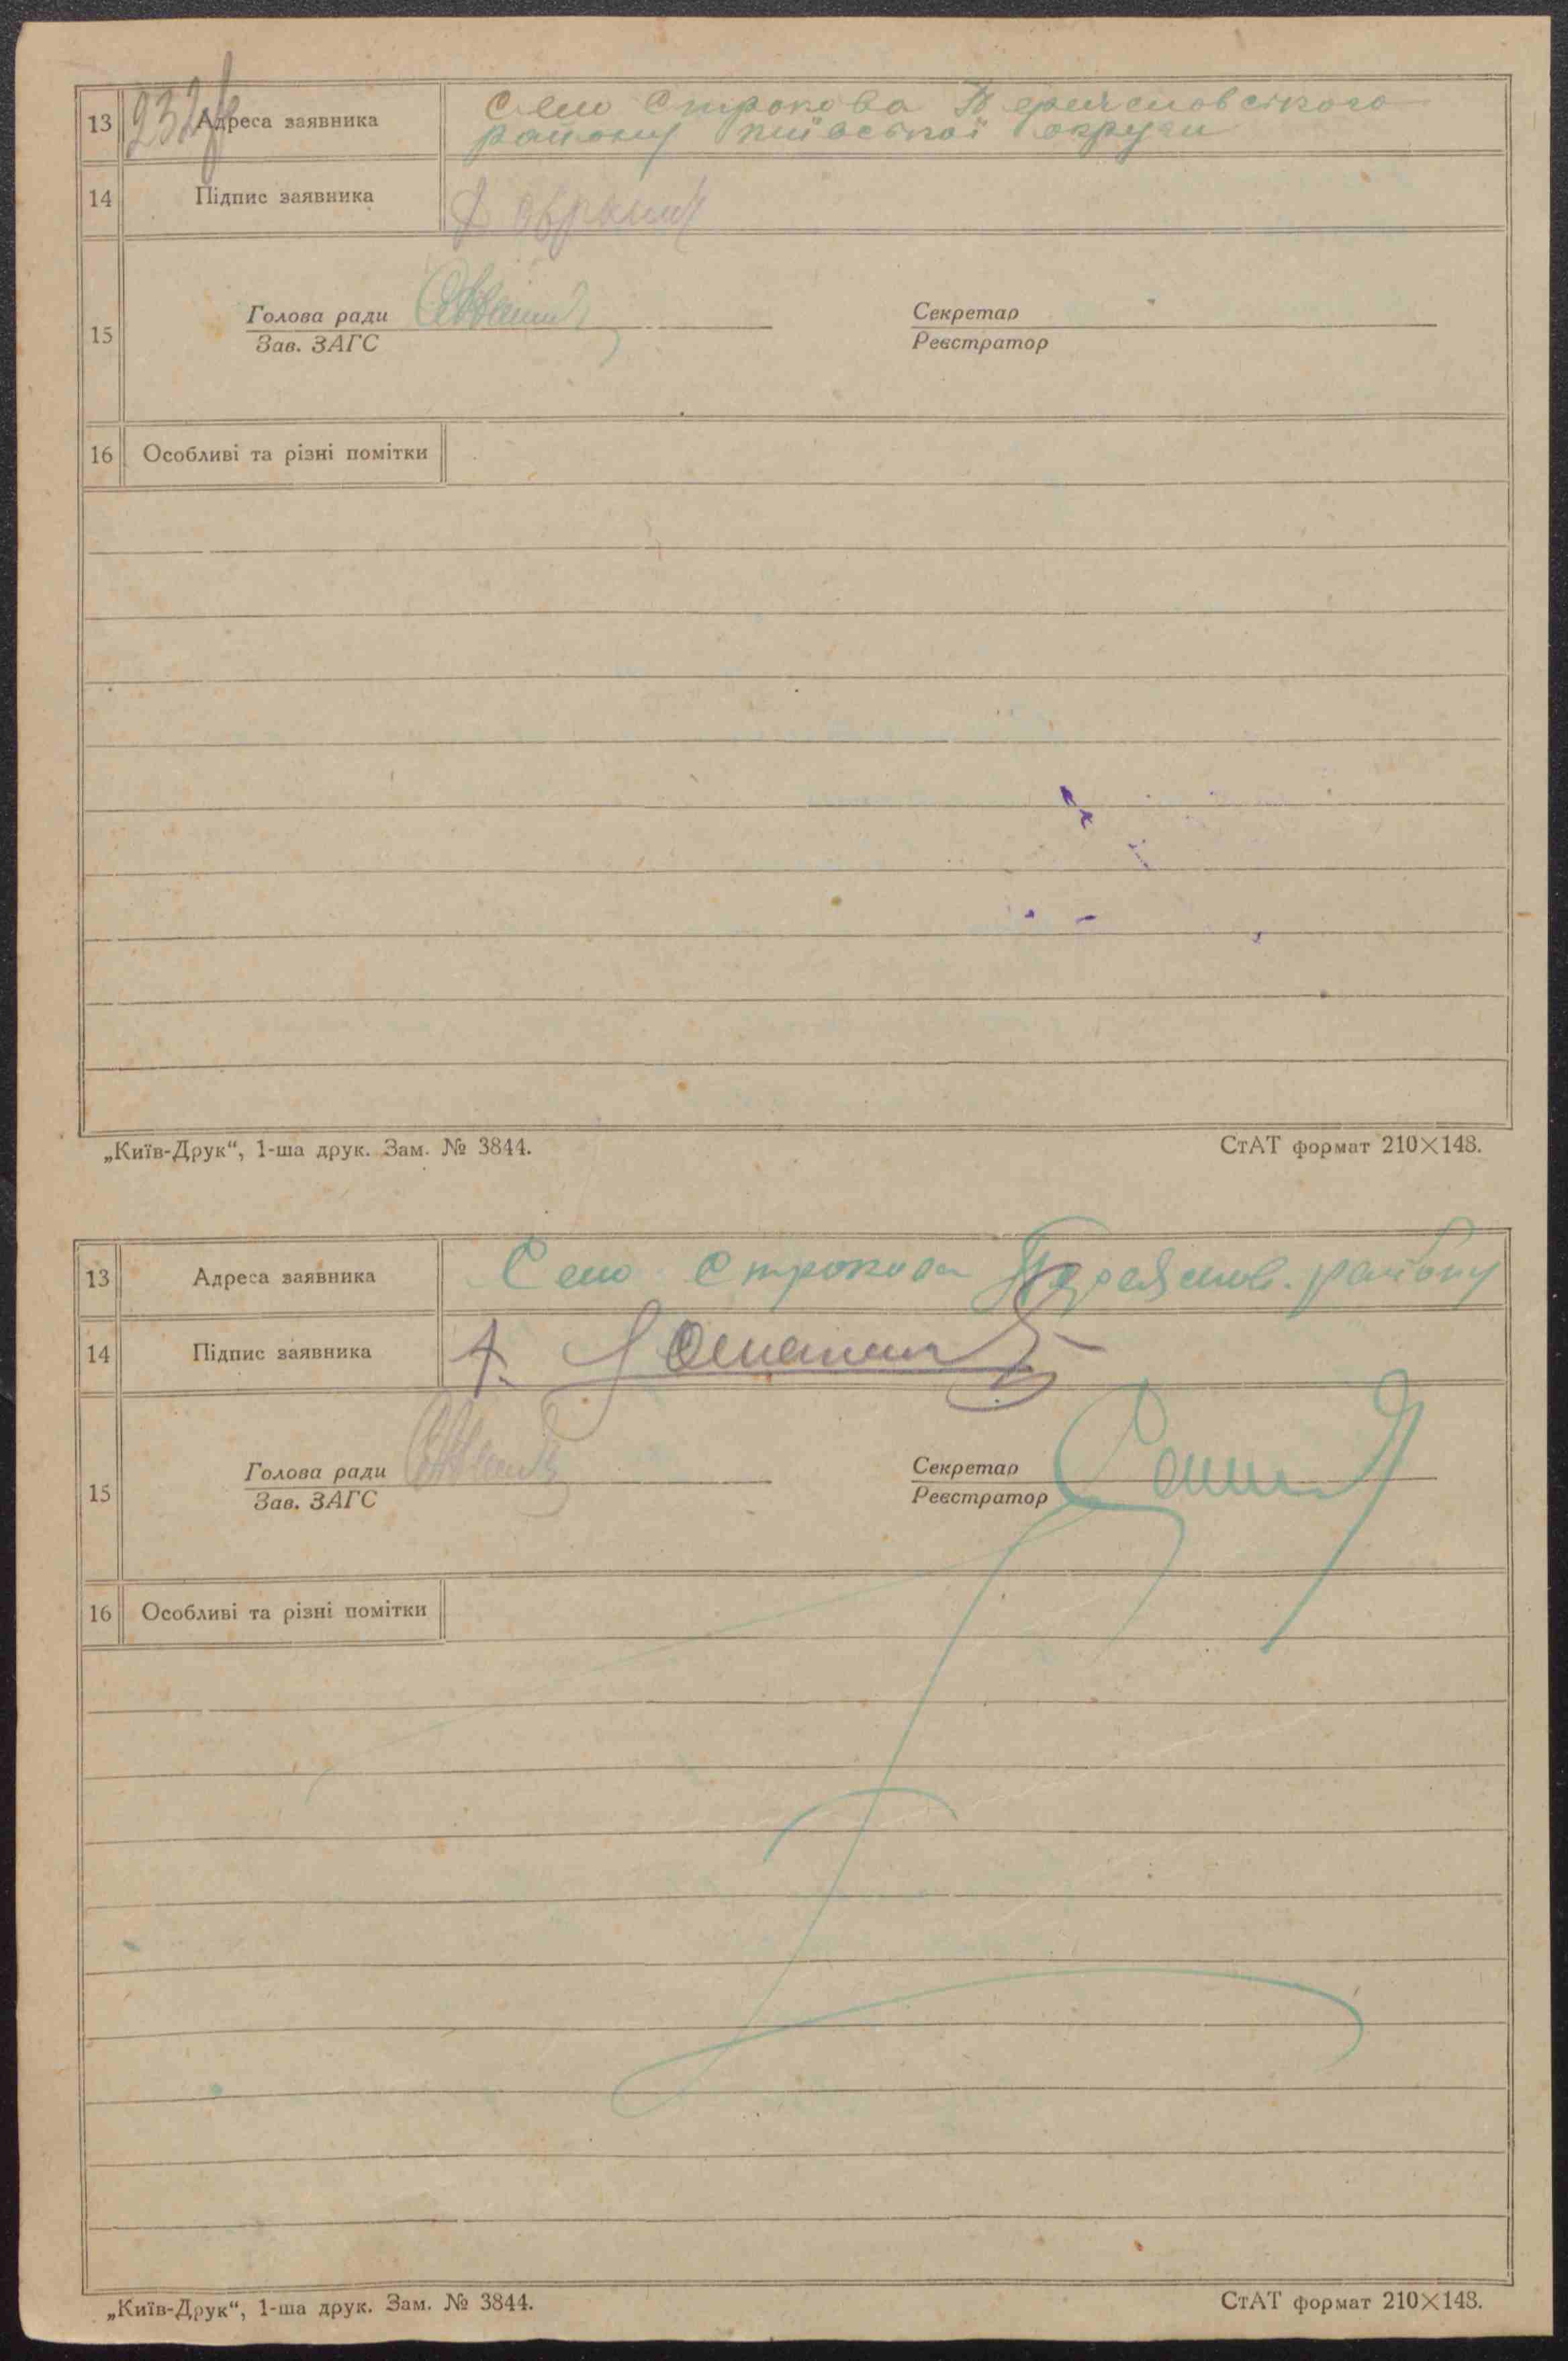 13 Адреса заявника Село Строкова
району київської округи
14 Підпис заявника
15 Голова ради Секретар
Зав. ЗАГС Реєстратор
16 Особливі та різні помітки
„Київ-Друк“, 1-ша друк. Зам. № 3844. СтАТ формат 210×148.
13 Адреса заявника Село Строкова району
14 Підпис заявника
15 Голова ради Секретар
Зав. ЗАГС Реєстратор
16 Особливі та різні помітки
„Київ-Друк“, 1-ша друк. Зам. № 3844. СтАТ формат 210×148.